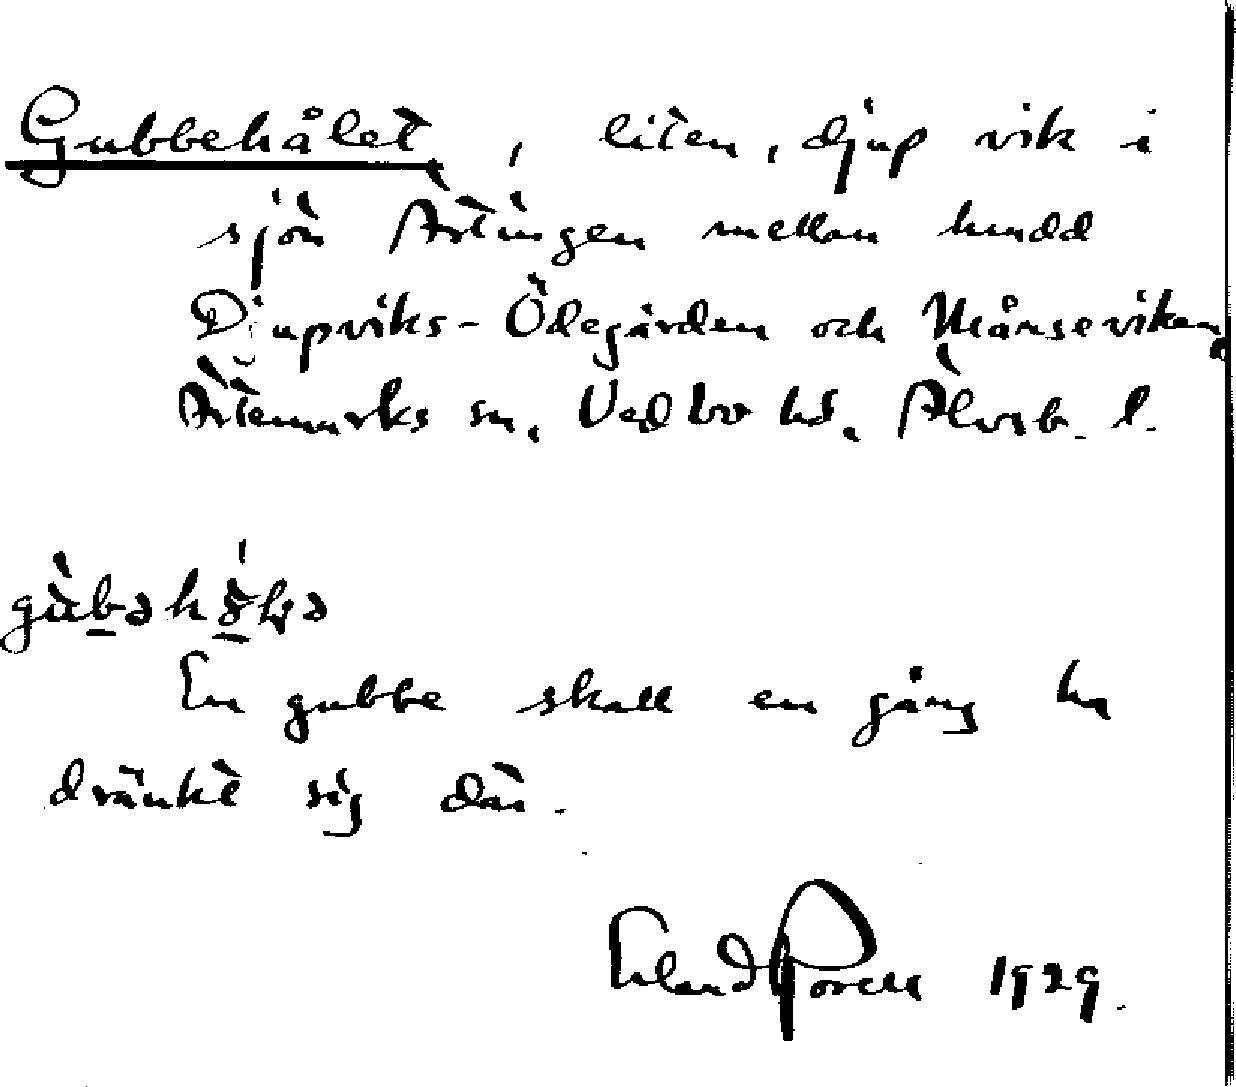 Gubbehålet, liten, djup vik i
sjön Ärtingen mellan hmdd
Djupviks-Ödegården och Månseviken,
Ärtemarks sn, Vedbo hd, Älvsb. l.
En gubbe skall en gång ha
dränkt sig där.
Erland Rosell 1929.